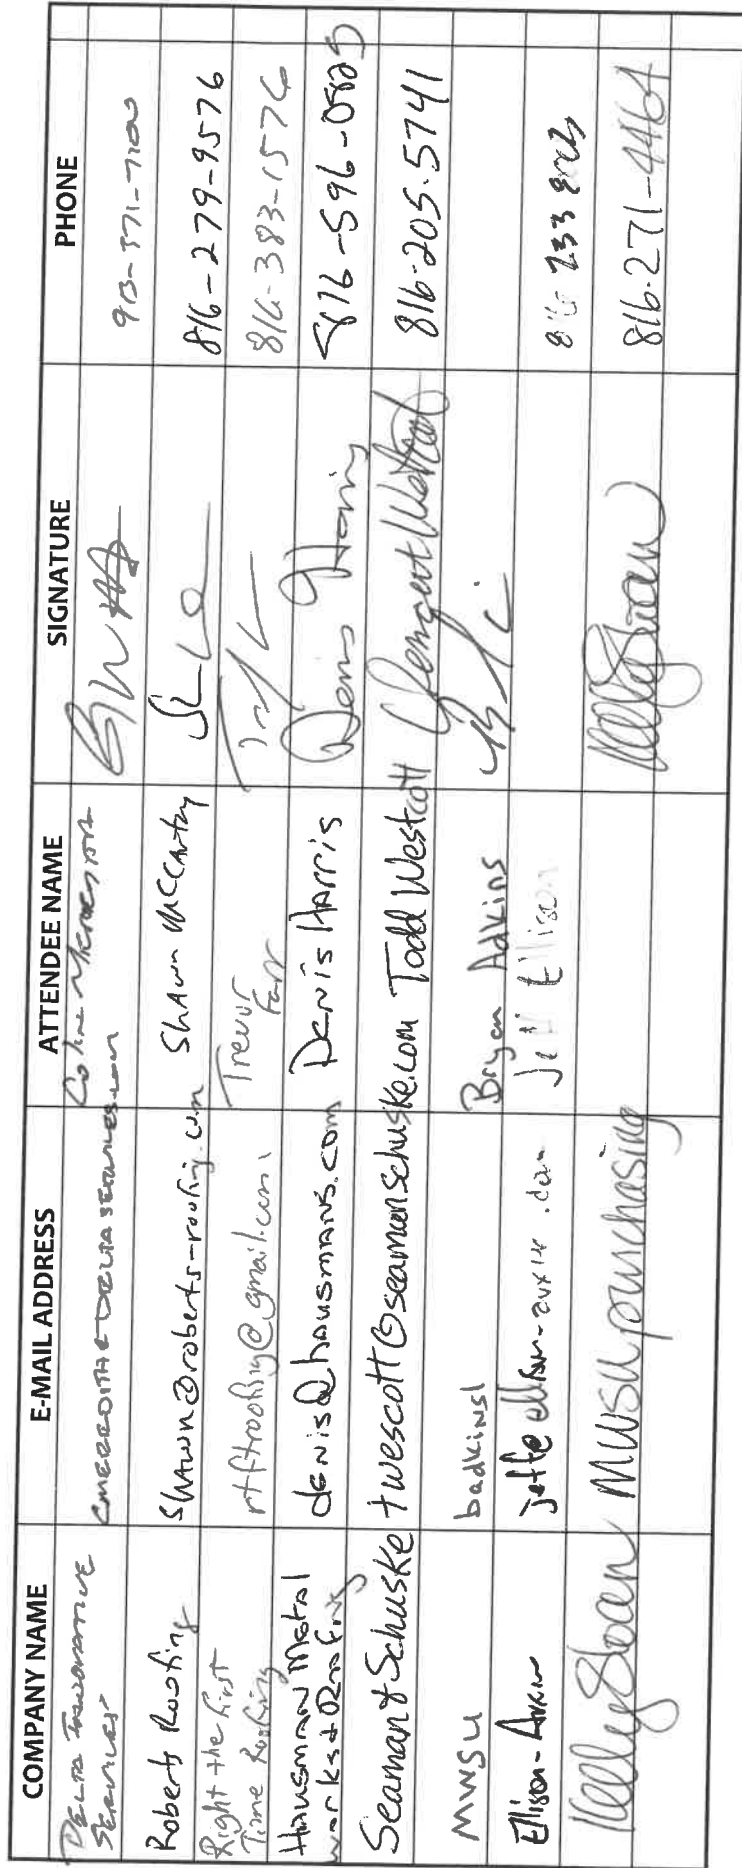 COMPANY NAME E-MAIL ADDRESS ATTENDEE NAME SIGNATURE PHONE
DELTA INNOVATIVE
SERVICES 913-371-7100
Roberts Roofing SHAWN@roberts-roofing.com SHAWN McCARthy 816-279-9576
Right the First
Time Roofing rtftroofing@gmail.com Trevor
Farr 816-383-1576
HAUSMAN Metal
works & Roofing denis@hausmans.com DENIS HARRIS Denis Harris 816-596-0825
Seaman & Schuske twescott@seamanschuske.com Todd Westcott 816-205-5741
MWSU badkins1 Bryan Adkins
Ellison-Auxier Jeff Ellison 816 233
Kelly Sloan MWSU purchasing Kelly Sloan 816-271-4464